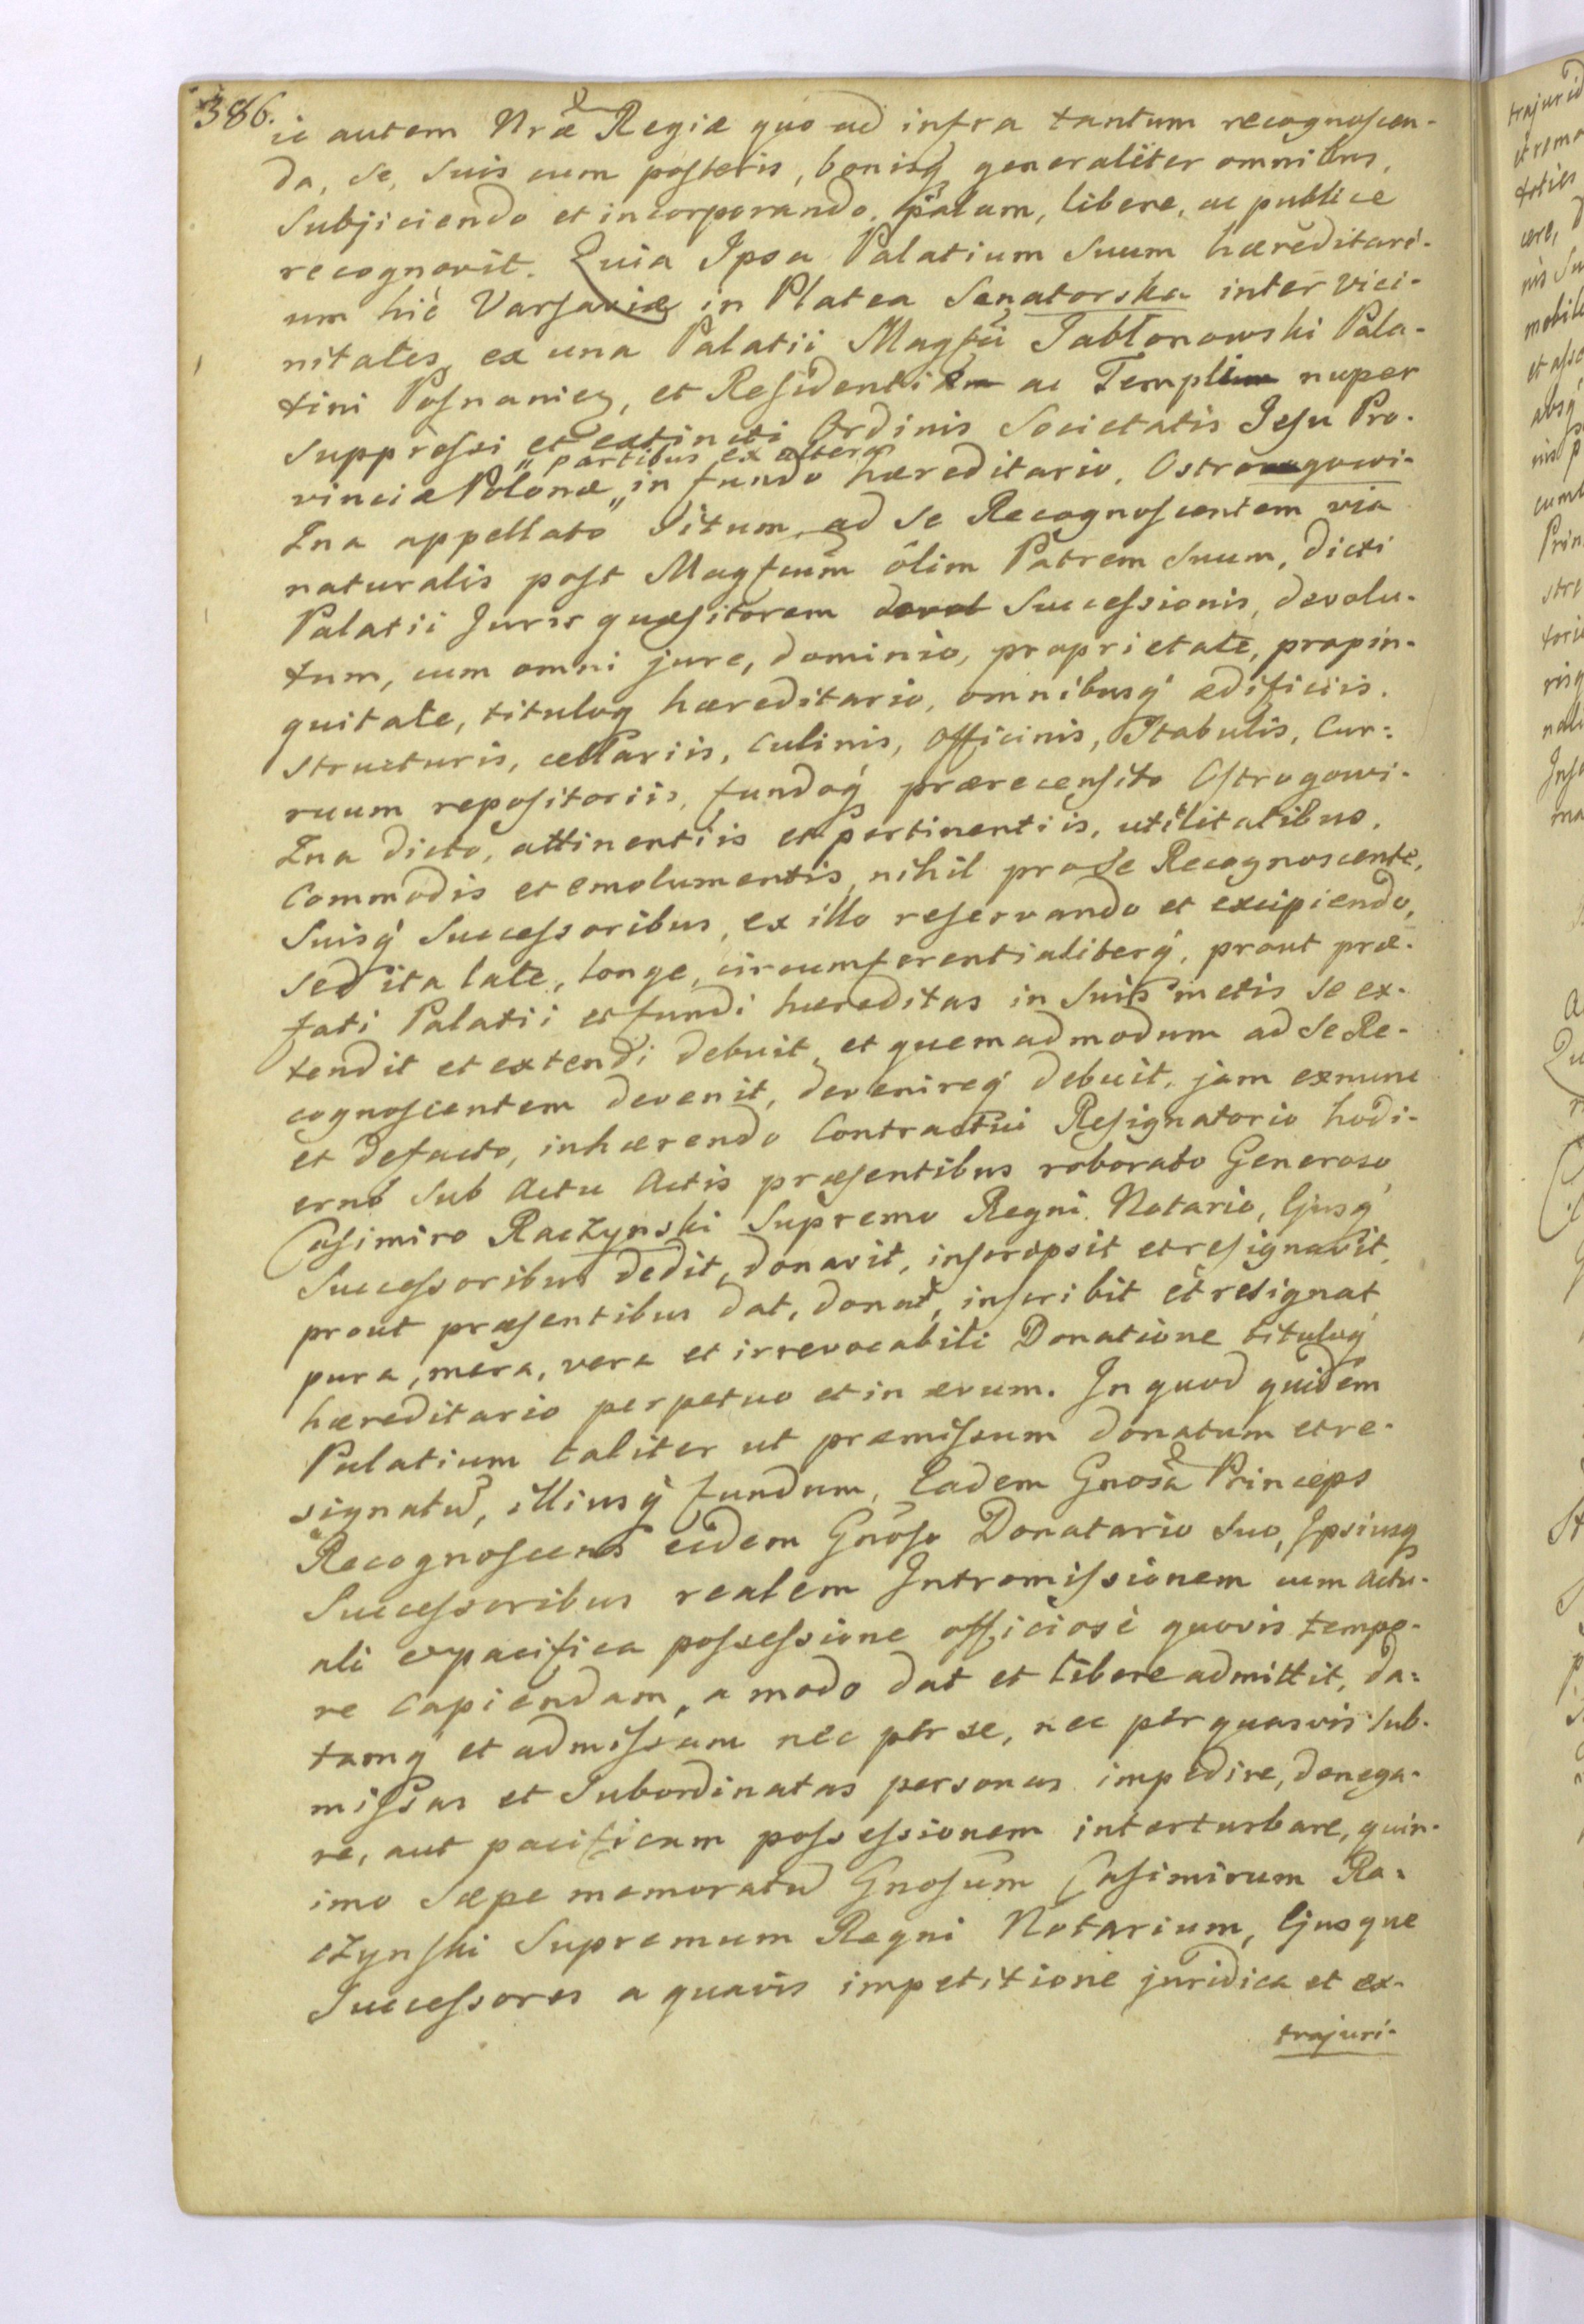 386.
ic autem Nræ Regiæ quo ad infra tantum recognoscen-
da, se, suis cum posteris, bonisq generaliter omnibus,
Subjiciendo et incorporando, palam, libere, ac publice
recognovit. Quia Ipsa Palatium Suum hæreditari-
um hic Varsaviæ in Platea Senatorska inter vici-
nitates, ex una Palatii Magfci Jabłonowski Pala-
tini Posnanien, et Residenti ac Templi nuper
Suppressi et extincti Ordinis Societatis Jesu Pro-
„ partibus ex altera
vinciæ Polonæ „ in fundo hæreditario, Ostrogowi-
Zna appellato Situm, ad Se Recognoscentem via
naturalis post Magfcum olim Patrem Suum, dicti
Palatii Juris quæsitorem devol Successionis, devolu-
tum, cum omni jure, dominio, proprietate, propin-
quitate, tituloq hæreditario, omnibusq ædificiis,
structuris, cellariis, Culinis, Officinis, Stabulis, Cur-
ruum repositoriis, fundoq prærecensito Ostrogowi-
Zna dicto, attinentiis et pertinentiis, utilitatibus,
Commodis et emolumentis, nihil pro Se Recognoscente,
Suisq Successoribus, ex illo reservando et excipiendo,
Sed ita late, longe, circumferentialiterq, prout præ-
fati Palatii et fundi hæreditas in Suis metis se ex-
tendit et extendi debuit, et quemadmodum ad Se Re-
cognoscentem devenit, devenireq debuit, jam exnunc
et defacto, inhærendo Contractui Resignatorio hodi-
erno Sub Actu Actis præsentibus roborato Generoso
Casimiro Raczynski Supremo Regni Notario, Ejusq
Successoribus dedit, donavit, inscripsit et resignavit,
prout præsentibus dat, donat, inscribit et resignat,
pura, mera, vera et irrevocabili Donatione tituloq
hæreditario perpetuo et in ævum. In quod quidem
Palatium taliter ut præmissum donatum et re-
signatu, illiusq fundum, Eadem Gnosa Princeps
Recognoscens eidem Gnoso Donatario Suo, Ipsiusq
Successoribus realem Intromissionem cum actu-
ali et pacifica possessione officiose quovis tempo-
re Capiendam, a modo dat et libere admittit, da-
tamq et admissam nec per se, nec per quasvis Sub-
missas et Subordinatas personas impedire, denega-
re, aut pacificam possessionem interturbare, quin-
imo Sæpe memoratu Gnosum Casimirum Ra-
czynski Supremum Regni Notarium, Ejusque
Successores a quavis impetitione juridica et ex-
trajuri-